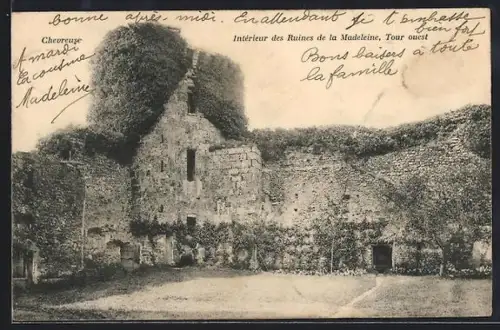 bonne après midi. En attendant je t'embrasse
bien fort
Chevreuse
Intérieur des Ruines de la Madeleine, Tour ouest
A mardi
ta cousine
Madeleine
Bons baisers à toute
la famille